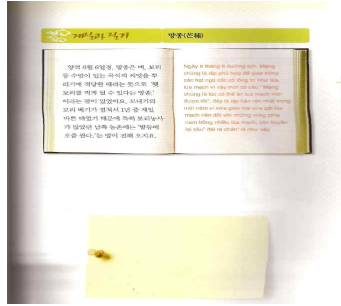 계절과 절기
망종(芒種)
양력 6월 6일경, 망종은 벼, 보리
등 수염이 있는 곡식의 씨앗을 뿌
리기에 적당한 때라는 뜻으로 '햇
보리를 먹게 될 수 있다는 망종'
이라는 말이 있었어요. 모내기와
보리 베기가 겹쳐서 1년 중 제일
바쁜 때였기 때문에 특히 보리농사
가 많았던 남쪽 농촌에는 '발등에
오줌 싼다.'는 말이 전해 오지요.
Ngày 6 tháng 6 dương lịch, Mang
chúng là dịp phù hợp để gieo trồng
các hạt ngũ cốc có râu như lúa,
lúa mạch vì vậy mới có câu "Mang
chúng là lúc có thể ăn lúa mạch mới
được rồi". Đây là dịp bận rộn nhất trong
một năm vì vừa gieo mạ vừa gặt lúa
mạch nên đối với những vùng phía
nam trồng nhiều lúa mạch, còn truyền
lại câu" đái ra chân" là như vậy.